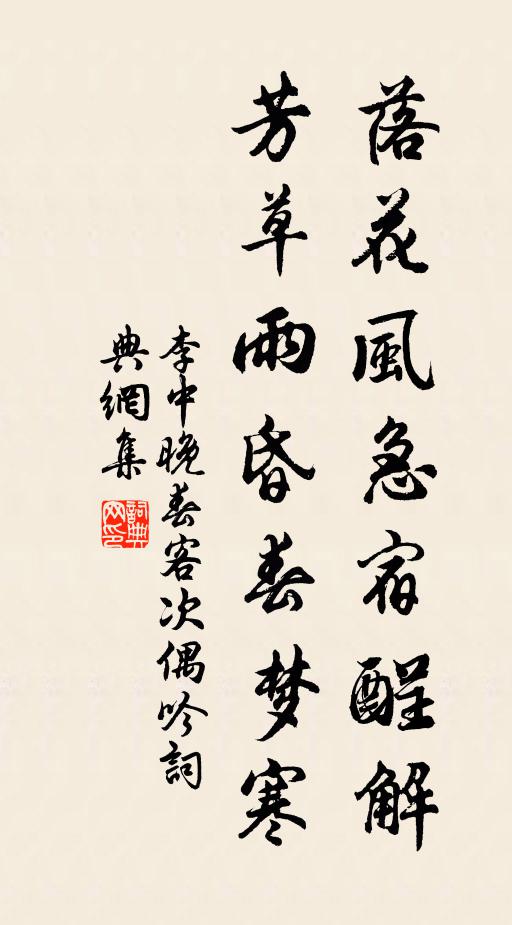 落花風急宿醒解
芳草雨昏春梦寒
李中晚春客次偶吟詞
典網集
詞典
网印